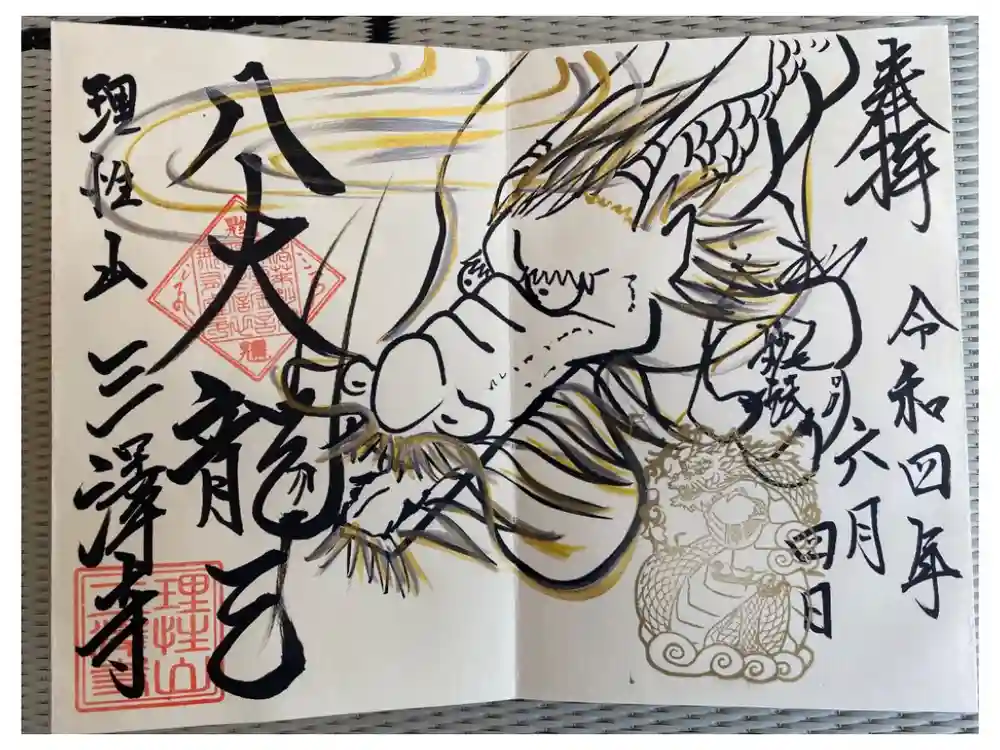 奉拝
令和四年
六月
四日
妙法
八大龍王
理性山 三澤寺
理性山
三澤寺